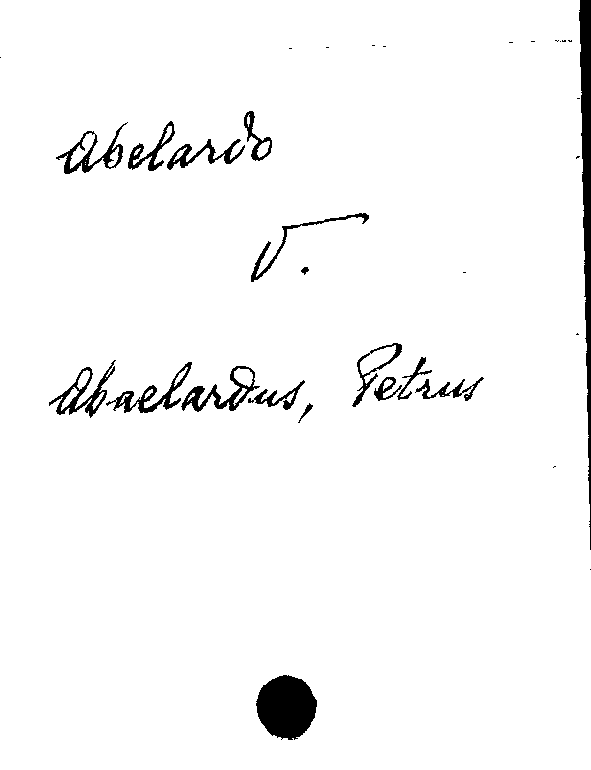 Abelardo
V.
Abaelardus, Petrus